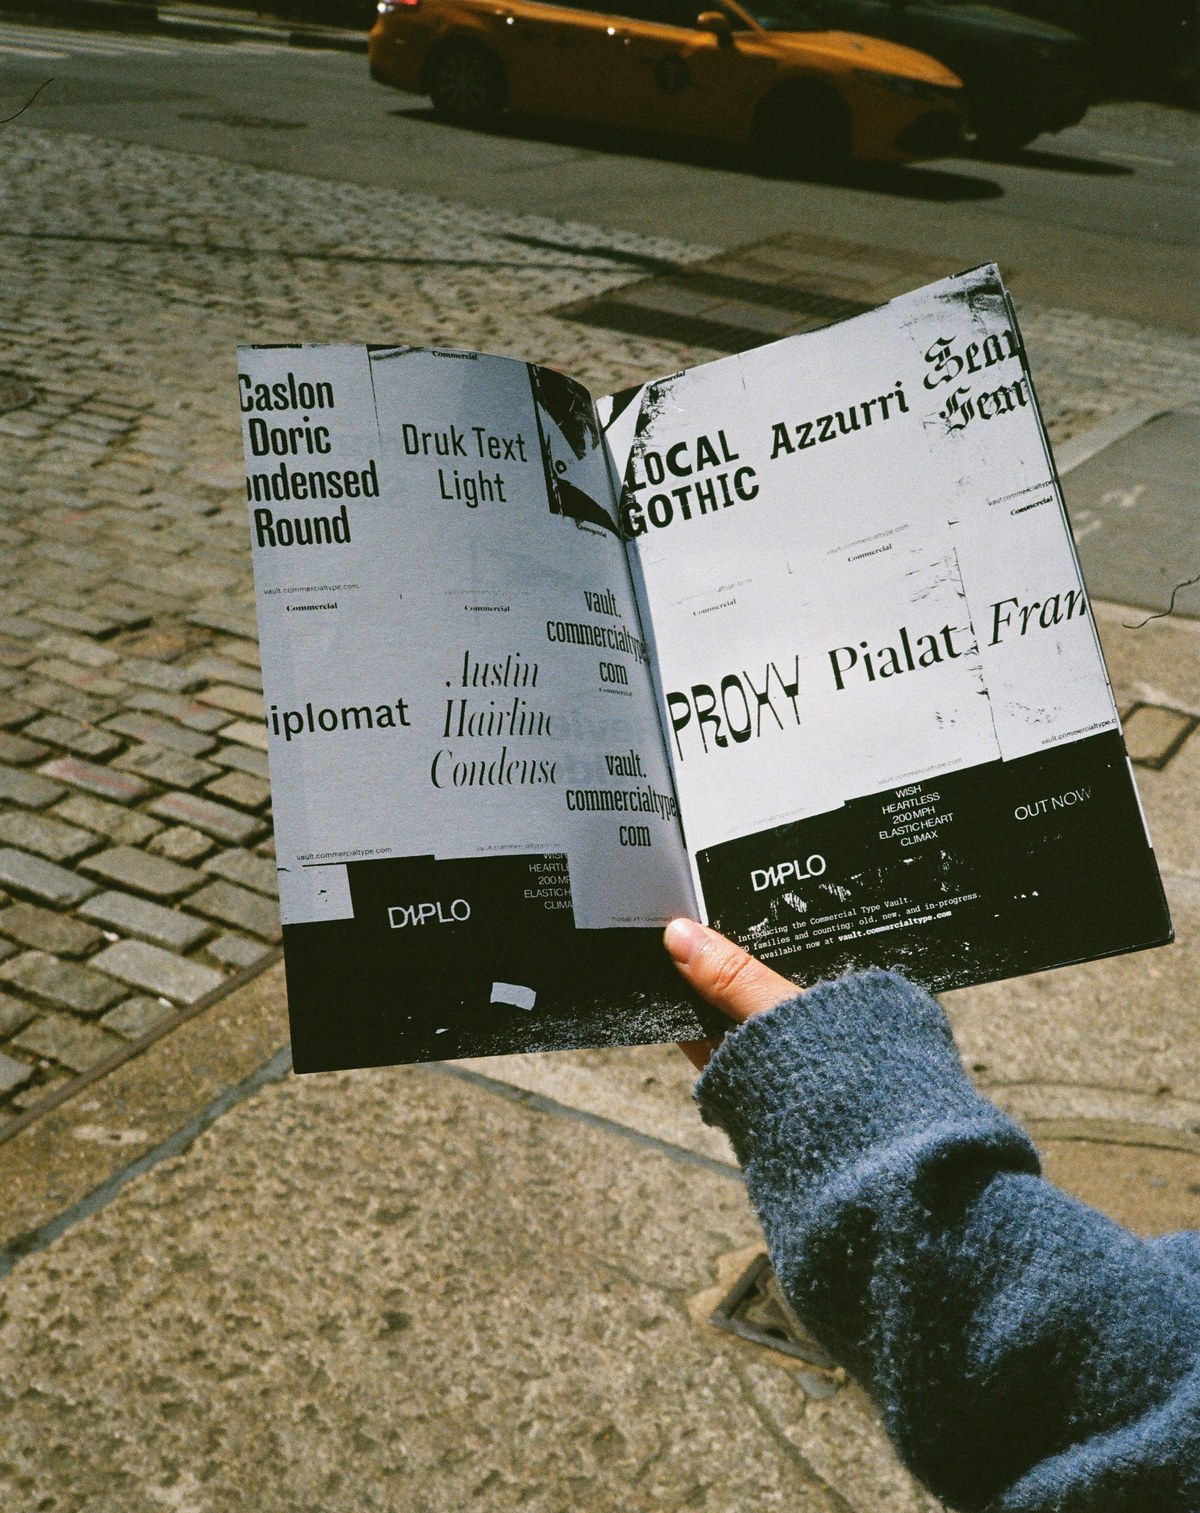 Commercial
Caslon
Doric
ondensed
Round
vault.commercialtype.com
Druk Text
Light
Commercial
iplomat
vault.commercialtype.com
Commercial
Austin
Hairline
Condense
vault.
commercialtype
com
vault.
commercialtype
com
DIPLO
HEARTL
200 MP
ELASTIC H
CLIMA
Commercial
LOCAL
GOTHIC
Azzurri
vault.commercialtype
Commercial
Commercial
Commercial
PROXY
Pialat
Fran
vault.commercialtype.com
vault.commercialtype.c
DIPLO
WISH
HEARTLESS
200 MPH
ELASTIC HEART
CLIMAX
OUT NOW
Introducing the Commercial Type Vault.
families and counting: old, new, and in-progress.
available now at vault.commercialtype.com